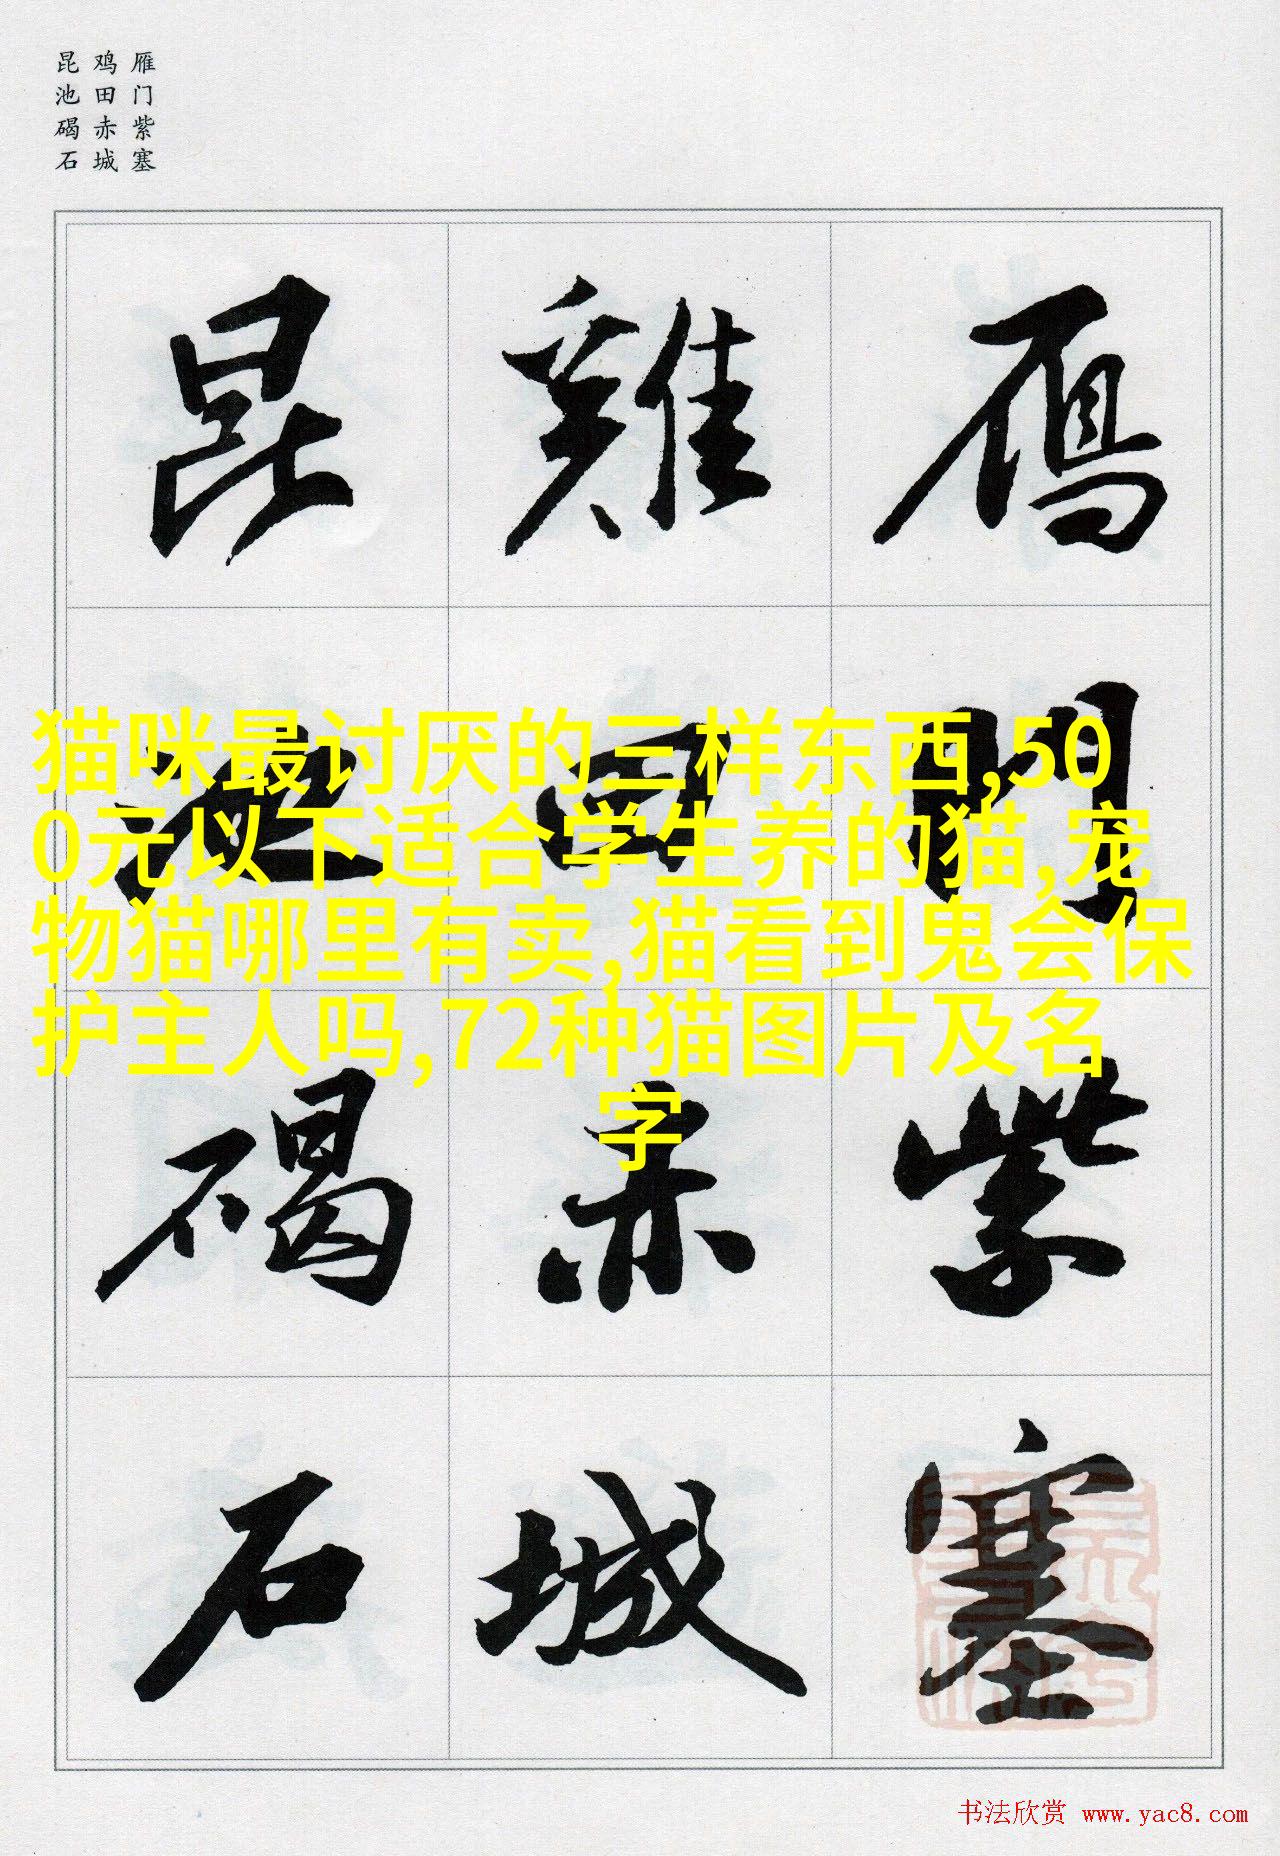 雁门紫塞
鸡田赤城
昆池碣石
鴈門紫塞
雞田赤城
昆池碣石
猫咪最讨厌的三样东西,50
0元以下适合学生养的猫,宠
物猫哪里有卖,猫看到鬼会保
护主人吗,72种猫图片及名
字
书法欣赏 www.yac8.com